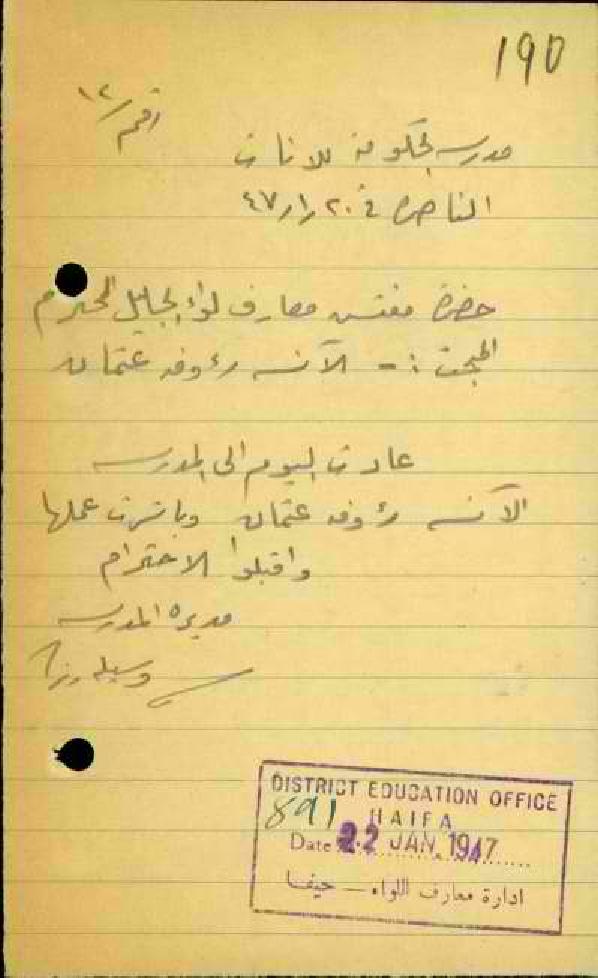 190
رقم / ١٢
مدرسة الحكومة للاناث
الناصرة في ٢٠ / ١ / ٤٧
حضرة مفتش معارف لواء الجليل المحترم
المبحث :- الآنسه رؤوفه عثمان
عادت اليوم الى المدرسه
الآنسه رؤوفه عثمان وباشرت عملها
واقبلوا الاحترام
مديرة المدرسه
وسيله
DISTRICT EDUCATION OFFICE
891 HAIFA
Date 22 JAN 1947
ادارة معارف اللواء — حيفا